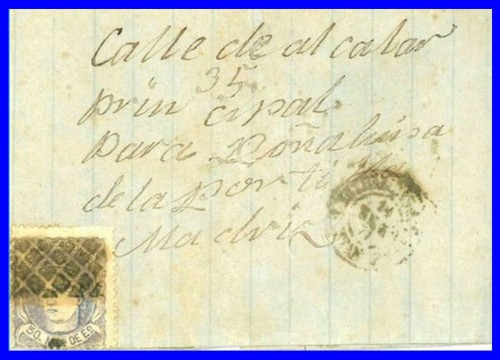 Calle de al calar
35
prin cipal
para Doña luisa
de la Por
Madrid
50 MILS DE Eo